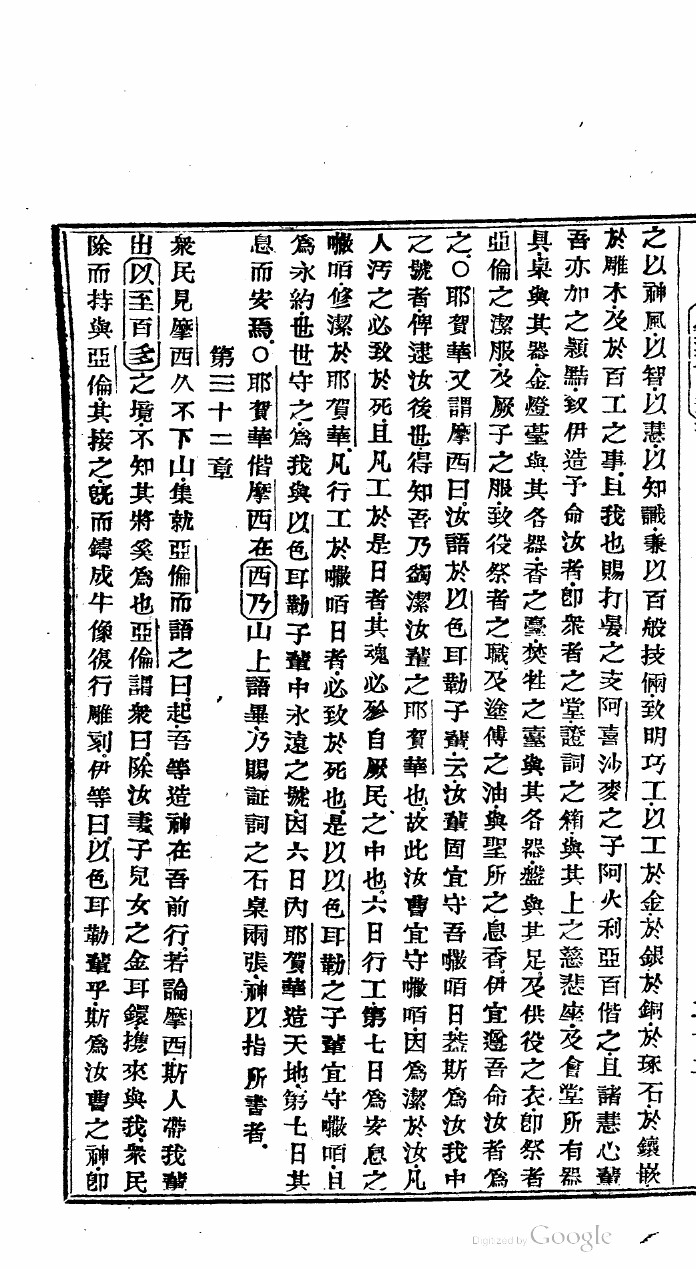 之以神風以智以慧以知識兼以百般技倆致明巧工以工於金於銀於銅於琢石於鑲嵌
於雕木及於百工之事且我也賜打晏之支阿喜沙麥之子阿火利亞百偕之且諸慧心輩
吾亦加之穎黠致伊造予命汝者即衆者之堂證詞之箱與其上之慈悲座及會堂所有器
具桌與其器金燈臺與其各器香之臺焚牲之臺與其各器盤與其足及供役之衣即祭者
亞倫之潔服及厥子之服致役祭者之職及塗傅之油與聖所之息香伊宜遵吾命汝者爲
之○耶賀華又謂摩西曰汝語於以色耳勒子輩云汝輩固宜守吾嘰咟日葢斯爲汝我中
之號者俾逮汝後世得知吾乃蠲潔汝輩之耶賀華也故此汝曹宜守嘰咟因爲潔於汝凡
人汚之必致於死且凡工於是日者其魂必殄自厥民之中也六日行工第七日爲安息之
嘰咟修潔於耶賀華凡行工於嘰咟日者必致於死也是以以色耳勒之子輩宜守嘰咟且
爲永約世世守之爲我與以色耳勒子輩中永遠之號因六日內耶賀華造天地第七日其
息而安焉○耶賀華偕摩西在西乃山上語畢乃賜証詞之石桌兩張神以指所書者
第三十二章
衆民見摩西久不下山集就亞倫而語之曰起吾等造神在吾前行若論摩西斯人帶我輩
出以至百多之境不知其將奚爲也亞倫謂衆曰除汝妻子兒女之金耳鐶携來與我衆民
除而持與亞倫其接之旣而鑄成牛像復行雕刻伊等曰以色耳勒輩乎斯爲汝曹之神即
Digitized by Google